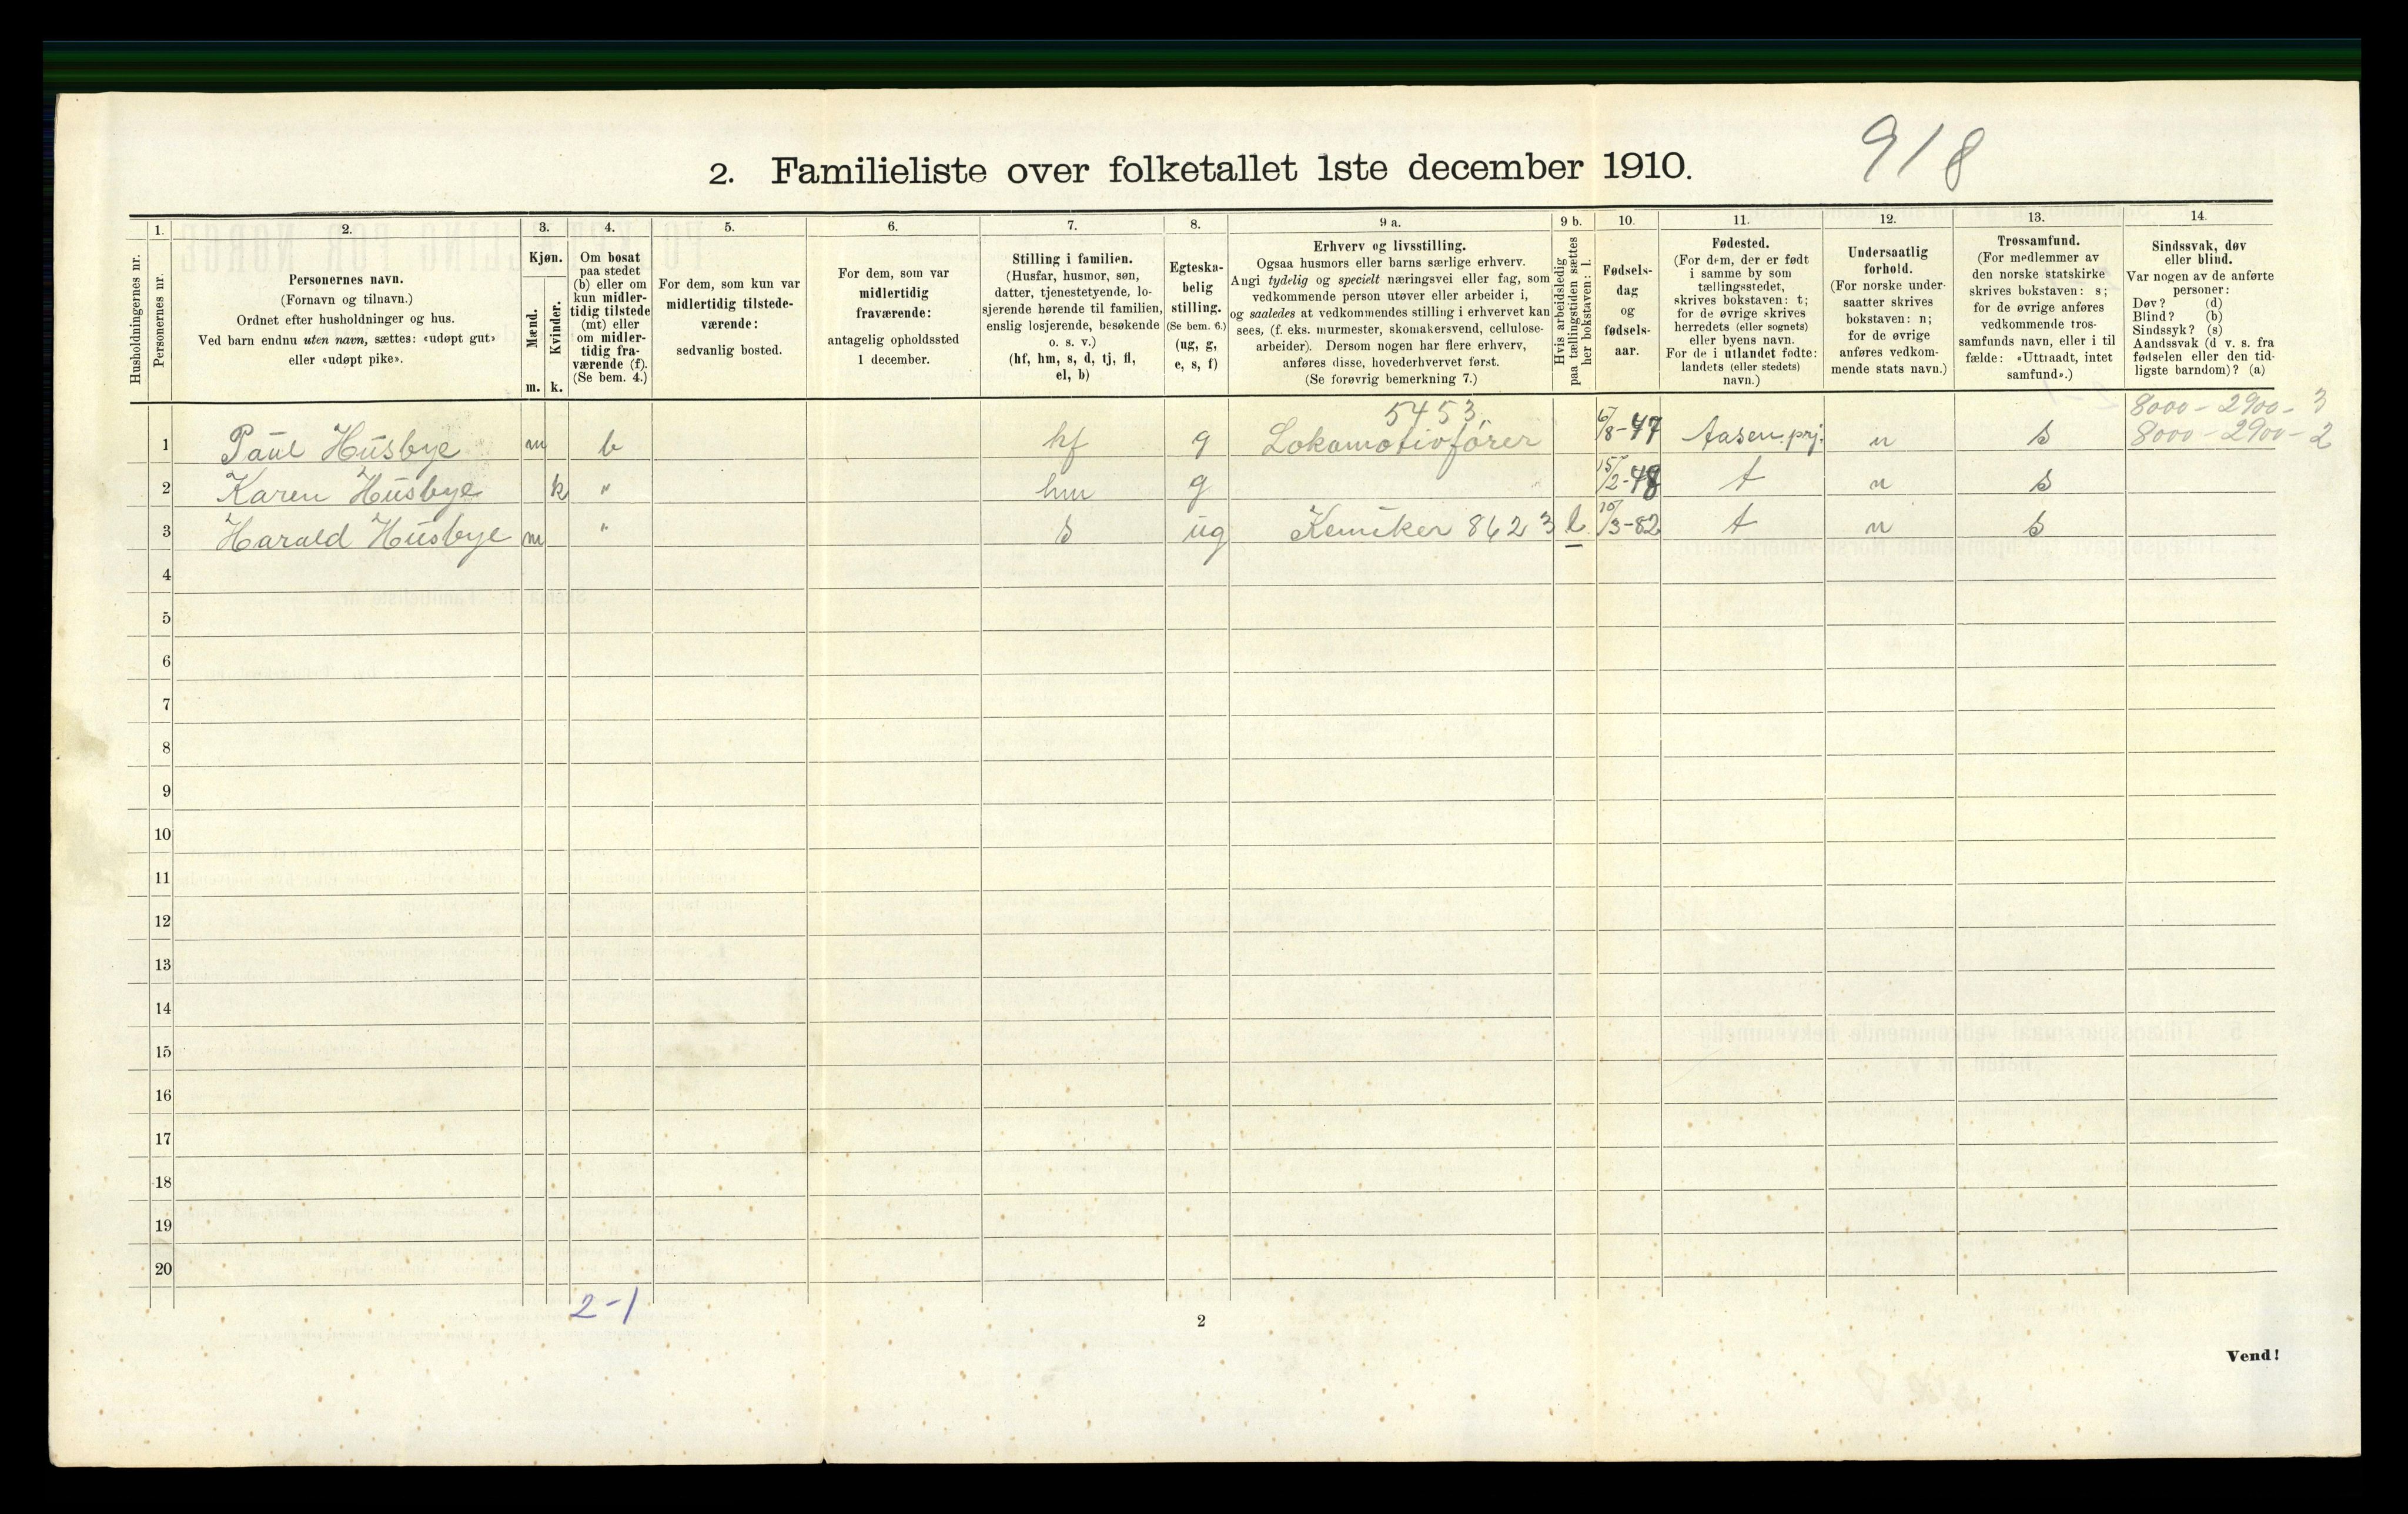 918
2. Familieliste over folketallet 1ste december 1910.
1. 2. 3. 4. 5. 6. 7. 8. 9 a. 9 b. 10. 11. 12. 13. 14.
Husholdningernes nr.
Personernes nr.
Personernes navn.
(Fornavn og tilnavn.)
Ordnet efter husholdninger og hus.
Ved barn endnu uten navn, sættes: «udøpt gut»
eller «udøpt pike».
Kjøn.
Mænd.
Kvinder.
m. k.
Om bosat
paa stedet
(b) eller om
kun midler-
tidig tilstede
(mt) eller
om midler-
tidig fra-
værende (f).
(Se bem. 4.)
For dem, som kun var
midlertidig tilstede-
værende:
sedvanlig bosted.
For dem, som var
midlertidig
fraværende:
antagelig opholdssted
1 december.
Stilling i familien.
(Husfar, husmor, søn,
datter, tjenestetyende, lo-
sjerende hørende til familien,
enslig losjerende, besøkende
o. s. v.)
(hf, hm, s, d, tj, fl,
el, b)
Egteska-
belig
stilling.
(Se bem. 6.)
(ug, g,
e, s, f)
Erhverv og livsstilling.
Ogsaa husmors eller barns særlige erhverv.
Angi tydelig og specielt næringsvei eller fag, som
vedkommende person utøver eller arbeider i,
og saaledes at vedkommendes stilling i erhvervet kan
sees, (f. eks. murmester, skomakersvend, cellulose-
arbeider). Dersom nogen har flere erhverv,
anføres disse, hovederhvervet først.
(Se forøvrig bemerkning 7.)
Hvis arbeidsledig
paa tællingstiden sættes
her bokstaven: l.
Fødsels-
dag
og
fødsels-
aar.
Fødested.
(For dem, der er født
i samme by som
tællingsstedet,
skrives bokstaven: t;
for de øvrige skrives
herredets (eller sognets)
eller byens navn.
For de i utlandet fødte:
landets (eller stedets)
navn.)
Undersaatlig
forhold.
(For norske under-
saatter skrives
bokstaven: n;
for de øvrige
anføres vedkom-
mende stats navn.)
Trossamfund.
(For medlemmer av
den norske statskirke
skrives bokstaven: s;
for de øvrige anføres
vedkommende tros-
samfunds navn, eller i til
fælde: «Uttraadt, intet
samfund».)
Sindssvak, døv
eller blind.
Var nogen av de anførte
personer:
Døv? (d)
Blind? (b)
Sindssyk? (s)
Aandssvak (d v. s. fra
fødselen eller den tid-
ligste barndom)? (a)
5453 8000 - 2900 - 3
1 Paul Husbye m b hf g Lokomotivfører 6/8-47 Aasen prj. n s 8000 - 2900 - 2
2 Karen Husbye k " hm g 15/2-48 t n s
3 Harald Husbye m " s ug Kemiker 8623 l 10/3-82 t n s
4
5
6
7
8
9
10
11
12
13
14
15
16
17
18
19
20
2-1
2
Vend!